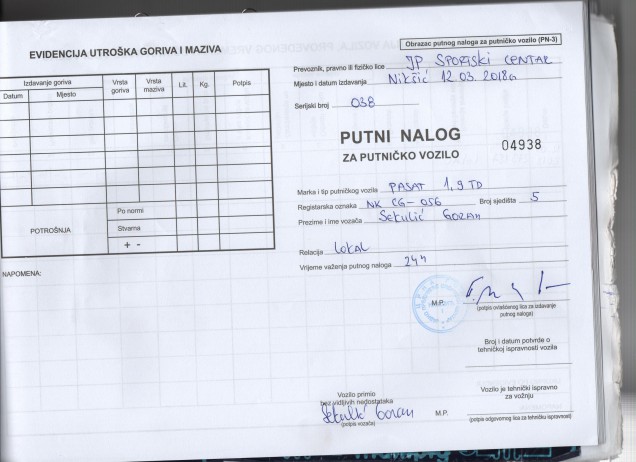 EVIDENCIJA UTROŠKA GORIVA I MAZIVA
Izdavanje goriva
Datum
Mjesto
Vrsta goriva
Vrsta maziva
Lit.
Kg.
Potpis
POTROŠNJA
Po normi
Stvarna
+ -
NAPOMENA:
Obrazac putnog naloga za putničko vozilo (PN-3)
Prevoznik, pravno ili fizičko lice JP SPORTSKI CENTAR
Mjesto i datum izdavanja Nikšić 12 03. 2018G
Serijski broj 038
PUTNI NALOG
ZA PUTNIČKO VOZILO
04938
Marka i tip putničkog vozila PASAT 1,9 TD
Registarska oznaka NK CG-056 Broj sjedišta 5
Prezime i ime vozača Sekulić Goran
Relacija Lokal
Vrijeme važenja putnog naloga 24h
M.P.
(potpis ovlašćenog lica za izdavanje
putnog naloga)
Broj i datum potvrde o
tehničkoj ispravnosti vozila
Vozilo primio
bez vidljivih nedostataka
Sekulić Goran
(potpis vozača)
M.P.
Vozilo je tehnički ispravno
za vožnju
(potpis odgovornog lica za tehničku ispravnost)